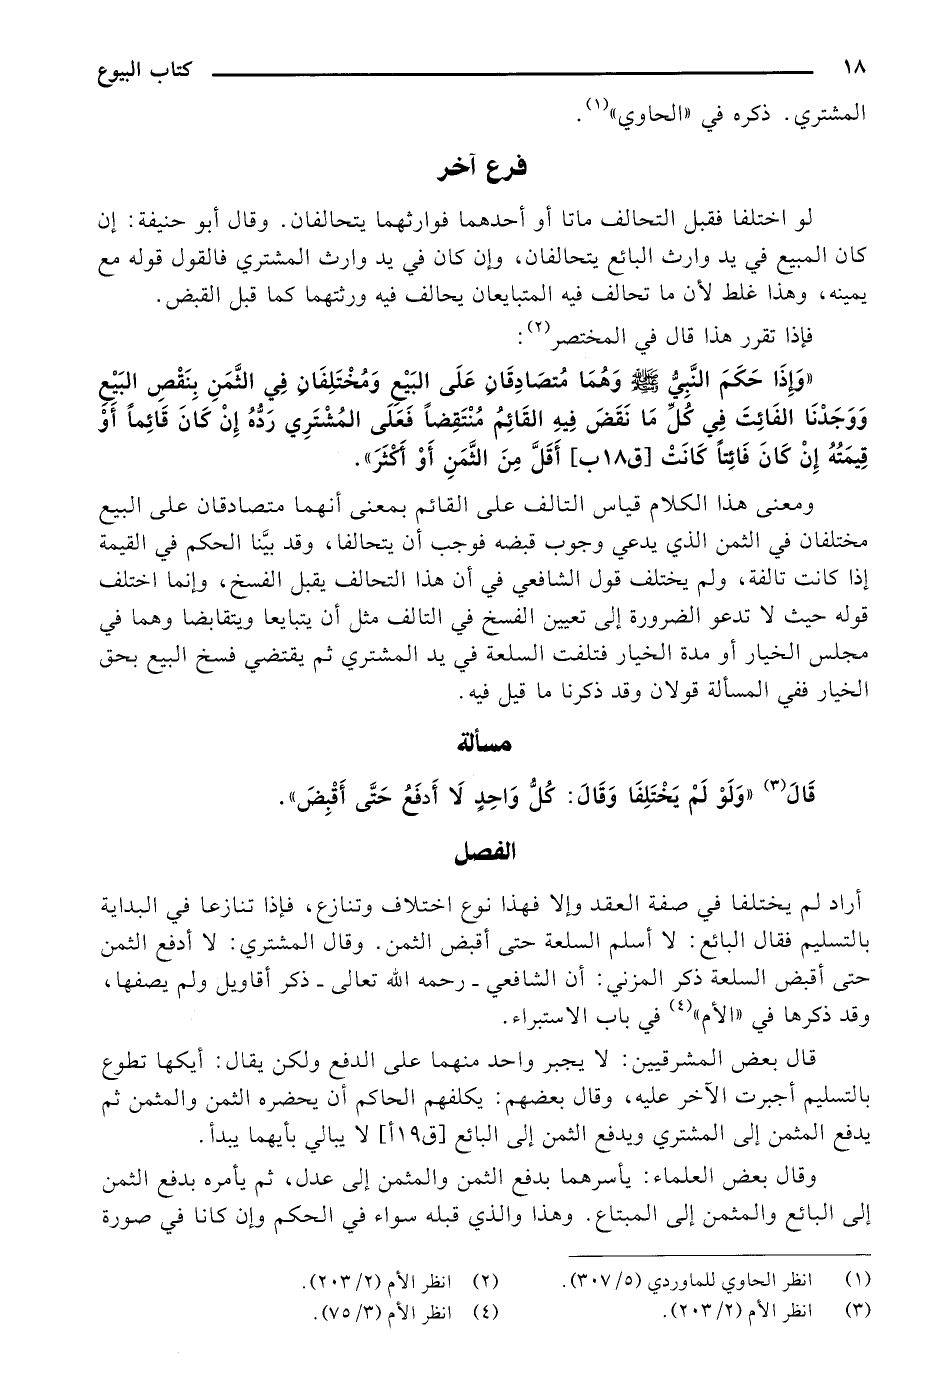 ١٨ كتاب البيوع
المشتري. ذكره في «الحاوي»(١).
فرع آخر
لو اختلفا فقبل التحالف ماتا أو أحدهما فوارثهما يتحالفان. وقال أبو حنيفة: إن
كان المبيع في يد وارث البائع يتحالفان، وإن كان في يد وارث المشتري فالقول قوله مع
يمينه، وهذا غلط لأن ما تحالف فيه المتبايعان يحالف فيه ورثتهما كما قبل القبض.
فإذا تقرر هذا قال في المختصر(٢):
«وَإِذَا حَكَمَ النَّبِيُّ ﷺ وَهُمَا مُتصَادِقَانِ عَلَى البَيْعِ وَمُخْتَلِفَانِ فِي الثَّمَنِ بِنَقْصِ البَيْعِ
وَوَجَدْنَا الفَائِتَ فِي كُلِّ مَا نَقَضَ فِيهِ القَائِمُ مُنْتَقِضاً فَعَلَى المُشْتَرِي رَدُّهُ إِنْ كَانَ قَائِماً أَوْ
قِيمَتُهُ إِنْ كَانَ فَائِتاً كَانَتْ [ق١٨ب] أَقَلَّ مِنَ الثَّمَنِ أَوْ أَكْثَرَ».
ومعنى هذا الكلام قياس التالف على القائم بمعنى أنهما متصادقان على البيع
مختلفان في الثمن الذي يدعي وجوب قبضه فوجب أن يتحالفا، وقد بيَّنا الحكم في القيمة
إذا كانت تالفة، ولم يختلف قول الشافعي في أن هذا التحالف يقبل الفسخ، وإنما اختلف
قوله حيث لا تدعو الضرورة إلى تعيين الفسخ في التالف مثل أن يتبايعا ويتقابضا وهما في
مجلس الخيار أو مدة الخيار فتلفت السلعة في يد المشتري ثم يقتضي فسخ البيع بحق
الخيار ففي المسألة قولان وقد ذكرنا ما قيل فيه.
مسألة
قَالَ(٣) «وَلَوْ لَمْ يَخْتَلِفَا وَقَالَ: كُلُّ وَاحِدٍ لَا أَدفَعُ حَتَّى أَقْبِضَ».
الفصل
أراد لم يختلفا في صفة العقد وإلا فهذا نوع اختلاف وتنازع، فإذا تنازعا في البداية
بالتسليم فقال البائع: لا أسلم السلعة حتى أقبض الثمن. وقال المشتري: لا أدفع الثمن
حتى أقبض السلعة ذكر المزني: أن الشافعي ـ رحمه الله تعالى ـ ذكر أقاويل ولم يصفها،
وقد ذكرها في «الأم»(٤) في باب الاستبراء.
قال بعض المشرقيين: لا يجبر واحد منهما على الدفع ولكن يقال: أيكها تطوع
بالتسليم أجبرت الآخر عليه، وقال بعضهم: يكلفهم الحاكم أن يحضره الثمن والمثمن ثم
يدفع المثمن إلى المشتري ويدفع الثمن إلى البائع [ق١٩أ] لا يبالي بأيهما يبدأ.
وقال بعض العلماء: يأسرهما بدفع الثمن والمثمن إلى عدل، ثم يأمره بدفع الثمن
إلى البائع والمثمن إلى المبتاع. وهذا والذي قبله سواء في الحكم وإن كانا في صورة
(١) انظر الحاوي للماوردي (٥/٣٠٧). (٢) انظر الأم (٢/٢٠٣).
(٣) انظر الأم (٢/٢٠٣). (٤) انظر الأم (٣/٧٥).